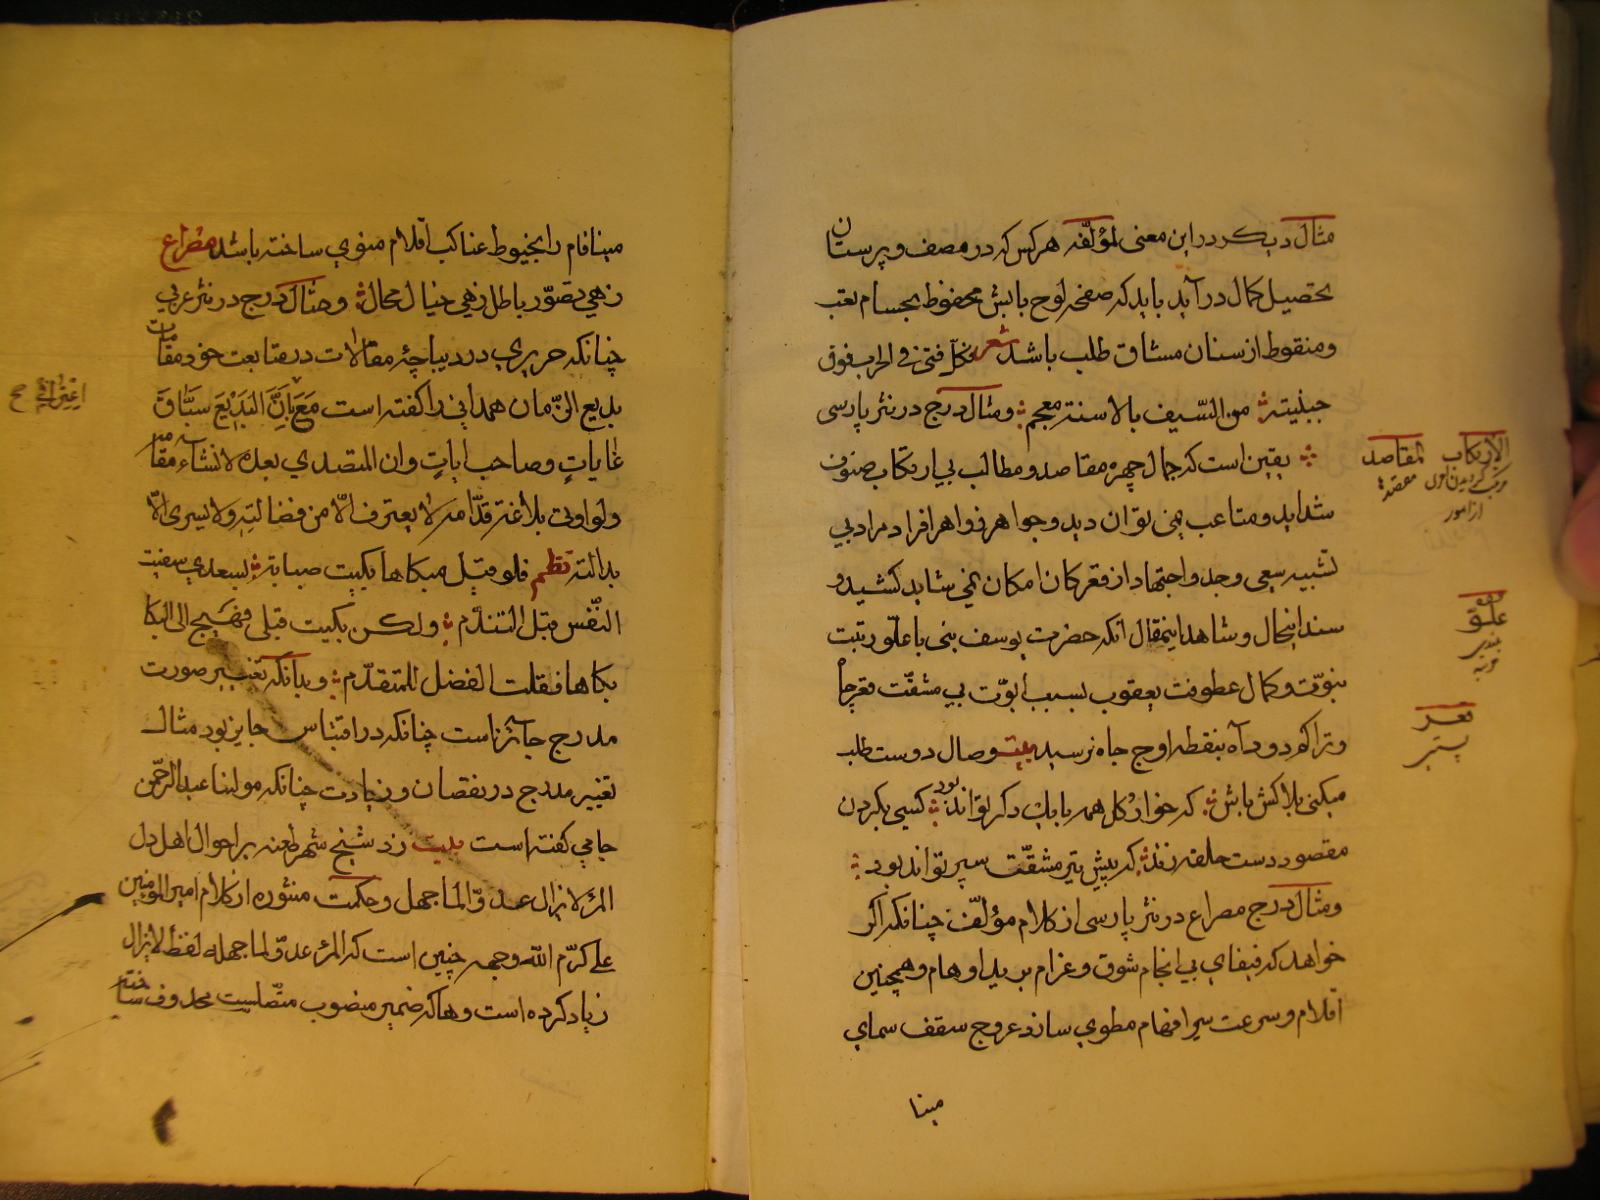 مثال دیکر در این معنی لمؤلّفه هرکس که در مصف و پرستان
تحصیل کمال درآید باید که صفحه لوح بالش محفوظ بجسام تعب
و منقوط از سنان مشاق طلب باشد شعر فکلّ فتی فی الحرب فوق
جبینه من السّیف بالاسنة معجم ومثال درج در نثر پارسی
یقین است که جمال چهره مقاصد و مطالب بی ارتکاب صنوف
شداید و متاعب نمی توان دید و جواهر زواهر افراد مراد بی
تشبیه سعی وجد واجتهاد از قعر کان امکان نمی شاید کشید و
سند اینحال و شاهد اینمقال انکه حضرت یوسف نبی با علّو رتبت
نبوّت و کمال عطوفت یعقوب بسبب ابوّت بی مشقّت قعر چاه
و تراکم دود آه بنقطه اوج جاه نرسید بیت وصال دوست طلب
میکنی بلاکش باش که خار و کل همه با یک دکر تواند بود کسی بکردن
مقصود دست حلقه زند که پیش تیر مشقّت سپر تواند بود
ومثال درج مصراع در نثر پارسی از کلام مؤلّف چنانکه اکر
خواهد که فیفای بی انجام شوق و غرام برید اوهام و همچنین
اقلام و سرعت سیر افهام مطوی سازد عروج سقف سمای
مینا
الارتکاب
المقاصد
مقصدها
از امور
علّو
بلندی
مرتبه
قعر
مینافام را بخیوط عناکب اقلام منوی ساخته باشد مصراع
زهی تصوّر باطل زهی خیال محال ومثال درج در نثر عربی
چنانکه حریری در دیباچۀ مقالات در متابعت خود مقامات
بدیع الزّمان همدانی را کفته است مَعَ بِاَنَّ البَدِیْعَ سَبَّاقُ
غایاتٍ وصاحب ایاتٍ وان المتصدی بعده لانشاء مقامة
ولو اوتی بلاغة قدّامه لا یعترف الّا من فضالتِهِ ولا یسری الّا
بدالته نظم فلو قبل مبکاها بکیت صبابة بسعدی شفیت
النّفس قبل التندّم ولکن بکیت قبلی فهیّج الی البکا
بکاها فقلت الفضل للمتقدّم و بدانکه تغییر صورت
مدرج جائز است چنانکه در اقتباس جایز بود مثال
تغییر مدرج در نقصان و زیادت چنانکه مولنا عبدالرّحمن
جامی کفته است بیت زد شیخ شهر طعنه بر احوال اهل دل
المرء لا یزال عدوّ الما جهل و حکمت منثوره از کلام امیر المومنین
علی کرّم الله وجهه چنین است که المرء عدوّ لما جهله لفظ لا یزال
زیاد کرده است و ها که ضمیر منصوب متّصلست محذوف ساخته